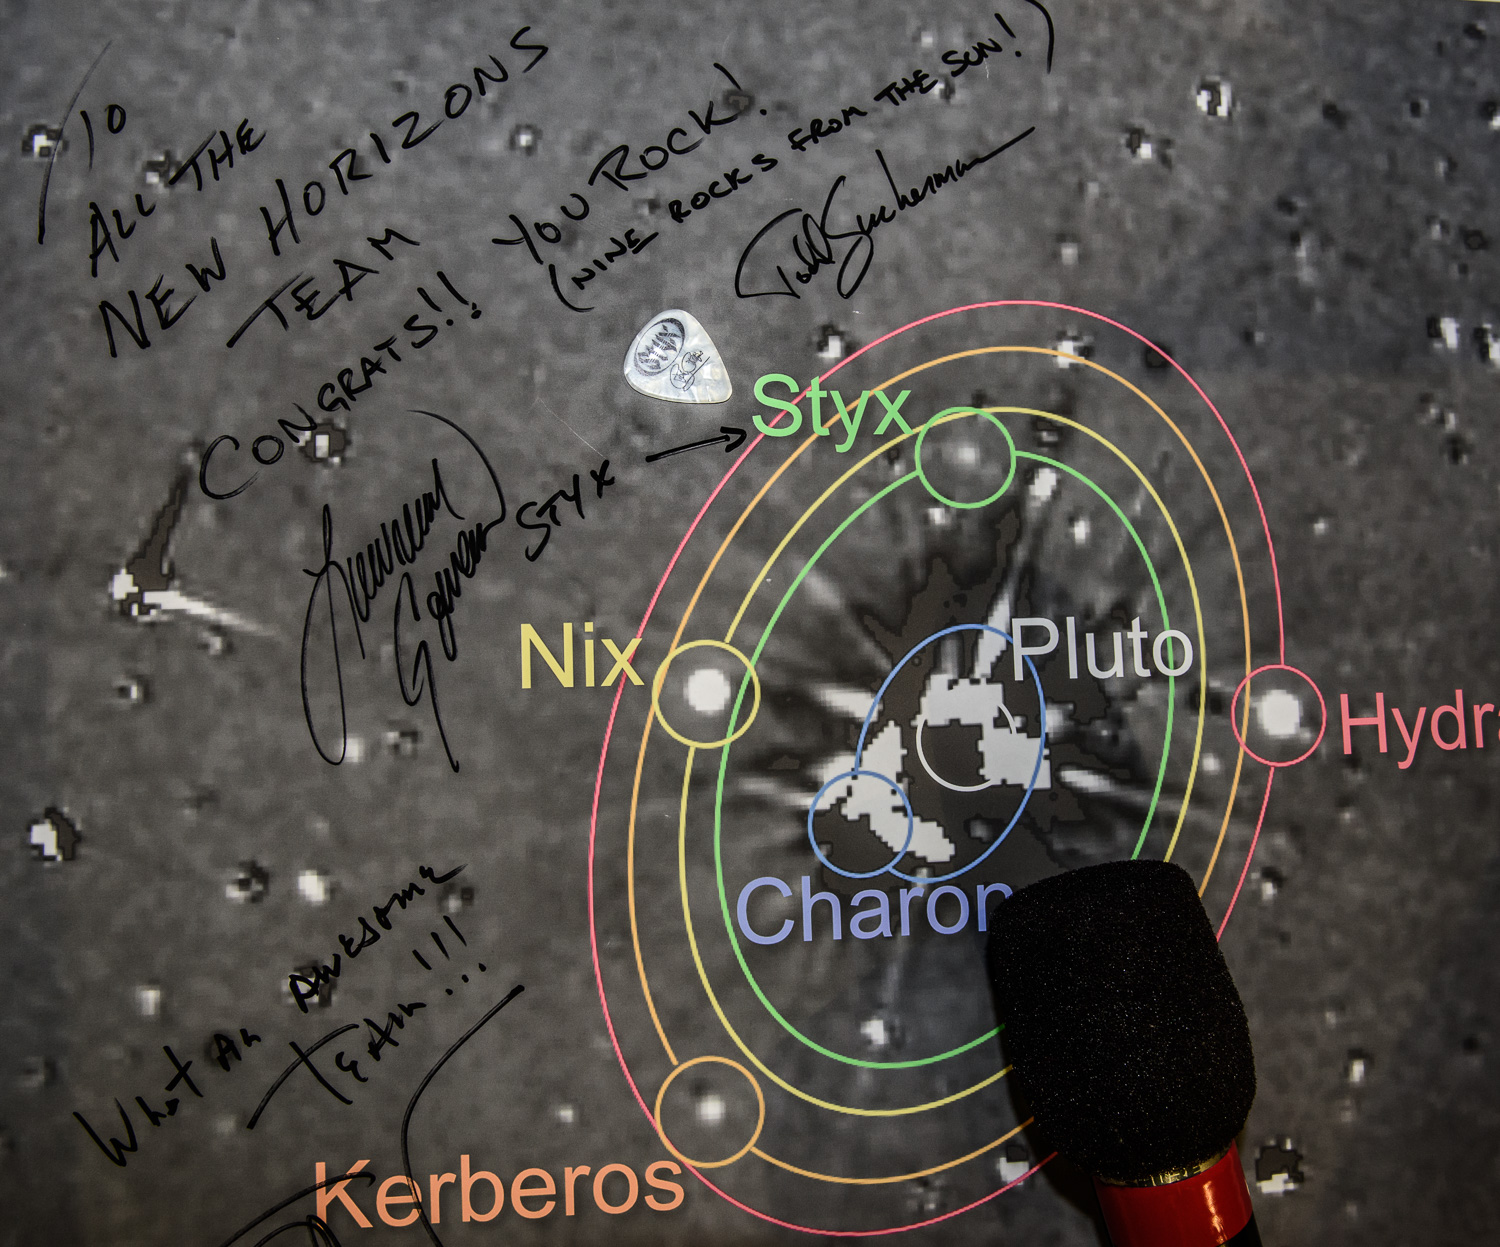 TO
ALL THE
NEW HORIZONS
TEAM
CONGRATS!!
YOU ROCK!
(NINE ROCKS FROM THE SUN!)
Todd Sucherman
Lawrence
Gowan
STYX →
Styx
Nix
Pluto
Hydra
Charon
WHAT AN AWESOME
TEAM!!!
Kerberos